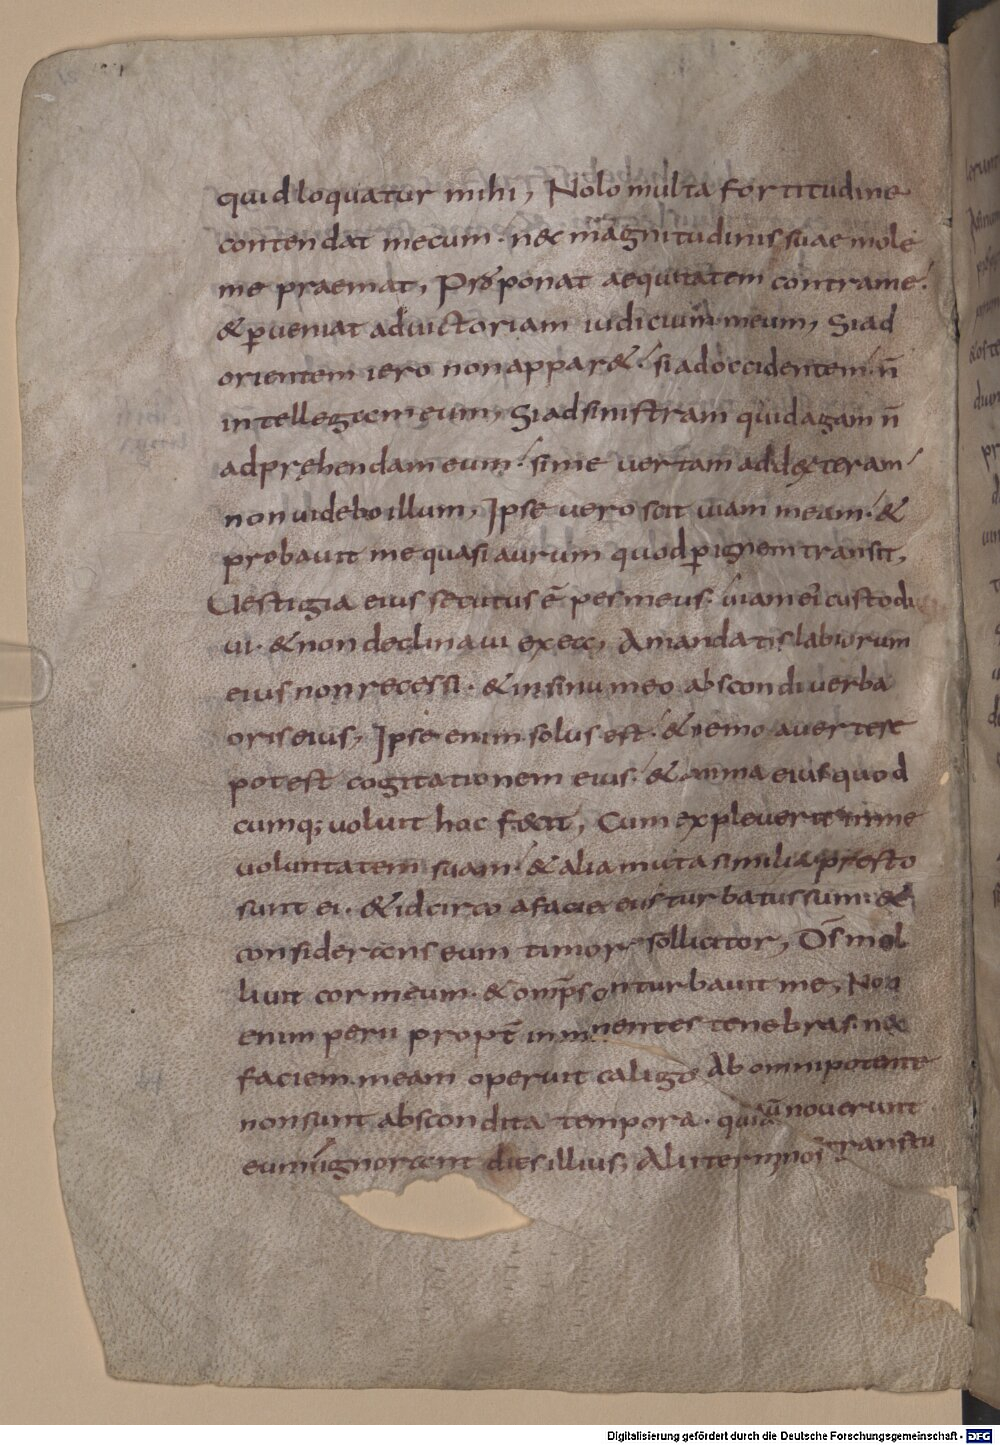 quid loquatur mihi, Nolo multa fortitudine
contendat mecum · nec magnitudinis suae mole
me praemat, Proponat aequitatem contra me ·
& ꝑveniat ad victoriam iudicium meum, Si ad
orientem iero non appar& · si ad occidentem · n̄
intellegam eum, Si ad sinistram quid agam n̄
adpręhendam eum · si me vertam ad dexteram
non videbo illum, Ipse vero scit viam meam · &
probavit me quasi aurum quod ꝑ ignem transit,
Vestigia eius secutus ē pes meus · viam ei custodi
vi · & non declinavi ex ea, A mandatis labiorum
eius non recessi · & in sinu meo abscondi verba
oris eius, Ipse enim solus est · & nemo avertere
potest cogitationem eius · & anima eius quod
cumq; voluit hoc fecit, Cum expleverit in me
voluntatem suam · & alia multa similia presto
sunt ei · & idcirco a facie eius turbatus sum · &
considerans eum timore sollicitor, D̄s mol
livit cor meum · & omp̄s conturbavit me, Non
enim perii propt̄ imminentes tenebras · nec
faciem meam operuit caligo Ab omnipotente
non sunt abscondita tempora · qui aū noverunt
eum ignorant dies illius, Alii terminos transtu
Digitalisierung gefördert durch die Deutsche Forschungsgemeinschaft - DFG